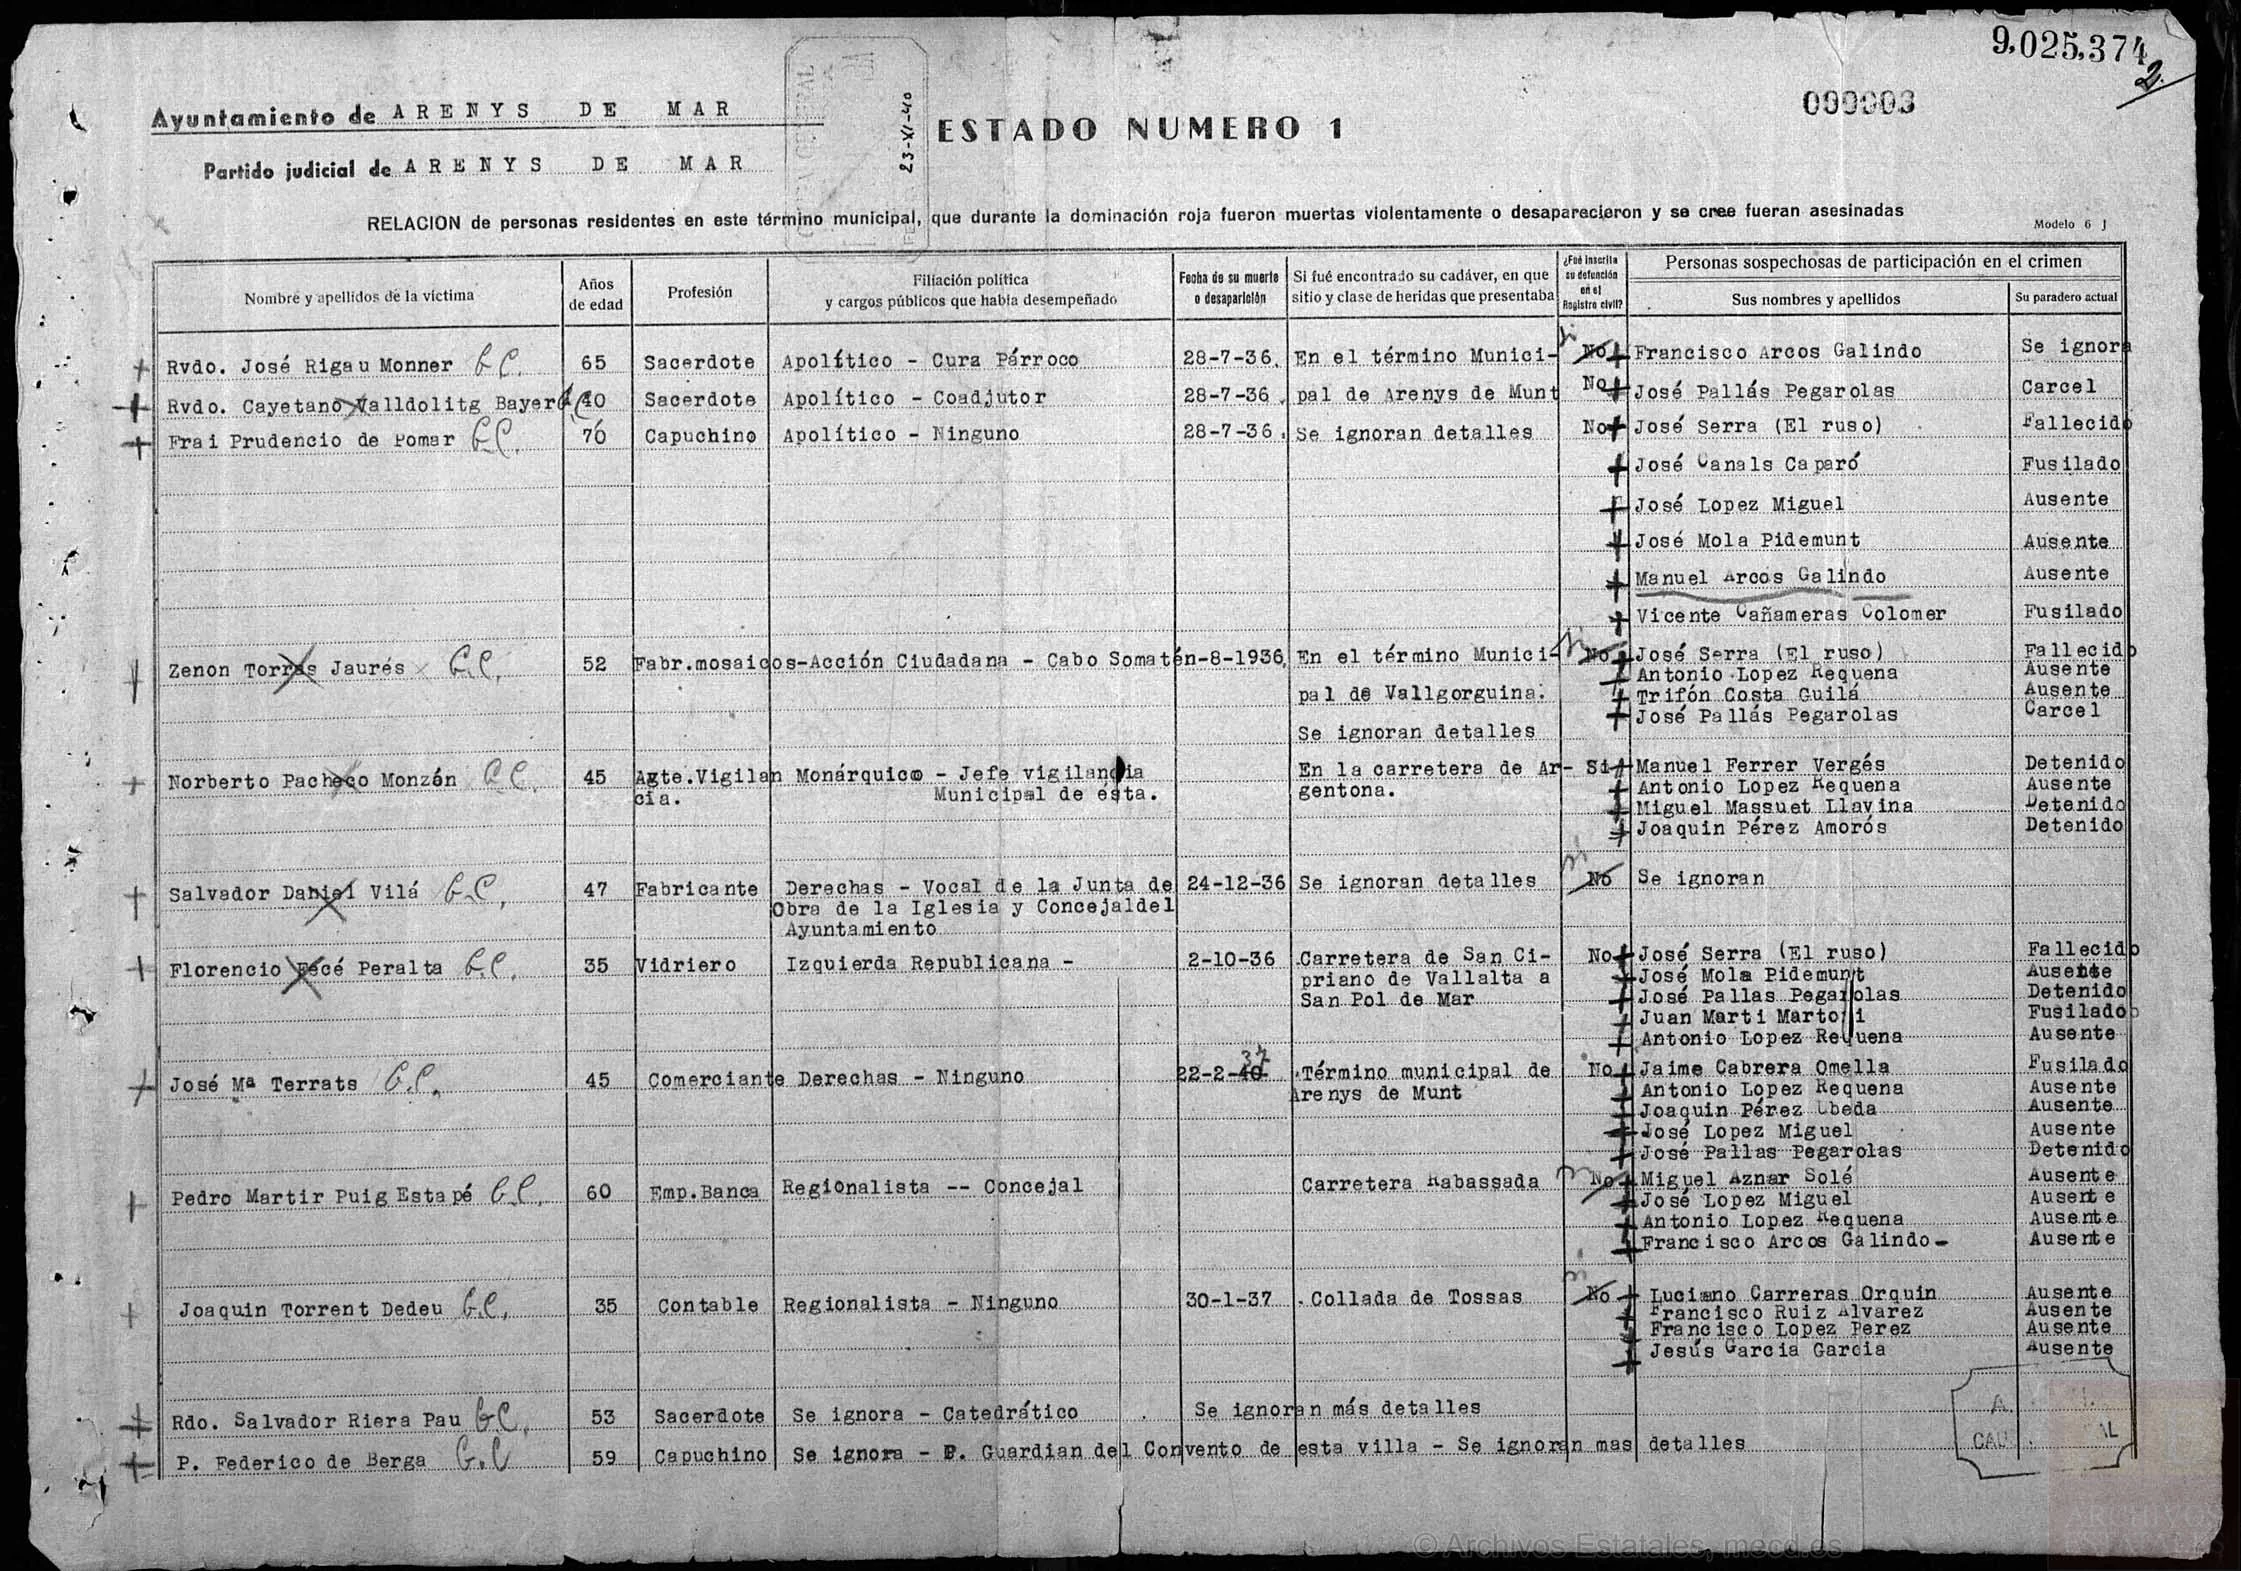 9,025,374
2.
000003
Ayuntamiento de ARENYS DE MAR
23-XI-40
ESTADO NUMERO 1
Partido judicial de ARENYS DE MAR
RELACION de personas residentes en este término municipal, que durante la dominación roja fueron muertas violentamente o desaparecieron y se cree fueran asesinadas
Modelo 6 J
Nombre y apellidos de la víctima | Años de edad | Profesión | Filiación política y cargos públicos que había desempeñado | Fecha de su muerte o desaparición | Si fué encontrado su cadáver, en que sitio y clase de heridas que presentaba | ¿Fué inscrita su defunción en el Registro civil? | Personas sospechosas de participación en el crimen
Sus nombres y apellidos | Su paradero actual
Rvdo. José Rigau Monner C.C. 65 Sacerdote Apolítico - Cura Párroco 28-7-36. En el término Munici- No Francisco Arcos Galindo Se ignora
Rvdo. Cayetano Valldolitg Bayer 40 Sacerdote Apolítico - Coadjutor 28-7-36. pal de Arenys de Munt No José Pallás Pegarolas Carcel
Frai Prudencio de Pomar C.C. 70 Capuchino Apolítico - Ninguno 28-7-36. Se ignoran detalles No José Serra (El ruso) Fallecido
José Canals Caparó Fusilado
José Lopez Miguel Ausente
José Mola Pidemunt Ausente
Manuel Arcos Galindo Ausente
Vicente Cañameras Colomer Fusilado
Zenon Torras Jaurés C.C. 52 Fabr.mosaicos-Acción Ciudadana - Cabo Somatén-8-1936. En el término Munici- No José Serra (El ruso) Fallecido
Antonio Lopez Requena Ausente
pal de Vallgorguina. Trifón Costa Guilá Ausente
José Pallás Pegarolas Carcel
Se ignoran detalles
Norberto Pacheco Monzón C.C. 45 Agte.Vigilan Monárquico - Jefe vigilancia En la carretera de Ar- Si Manuel Ferrer Vergés Detenido
cia. Municipal de esta. gentona. Antonio Lopez Requena Ausente
Miguel Massuet Llavina Detenido
Joaquin Pérez Amorós Detenido
Salvador Daniel Vilá C.C. 47 Fabricante Derechas - Vocal de la Junta de 24-12-36 Se ignoran detalles No Se ignoran
Obra de la Iglesia y Concejaldel
Ayuntamiento
Florencio Fecé Peralta C.C. 35 Vidriero Izquierda Republicana - 2-10-36 .Carretera de San Ci- No José Serra (El ruso) Fallecido
priano de Vallalta a José Mola Pidemunt Ausente
San Pol de Mar José Pallas Pegarolas Detenido
Juan Marti Martori Fusilado
Antonio Lopez Requena Ausente
37
José Mª Terrats C.C. 45 Comerciante Derechas - Ninguno 22-2-40 .Término municipal de No Jaime Cabrera Omella Fusilado
Arenys de Munt Antonio Lopez Requena Ausente
Joaquin Pérez Ubeda Ausente
José Lopez Miguel Ausente
José Pallas Pegarolas Detenido
Pedro Martir Puig Estapé C.C. 60 Emp.Banca Regionalista -- Concejal Carretera Rabassada No Miguel Aznar Solé Ausente
José Lopez Miguel Ausente
Antonio Lopez Requena Ausente
Francisco Arcos Galindo- Ausente
Joaquin Torrent Dedeu C.C. 35 Contable Regionalista - Ninguno 30-1-37 .Collada de Tossas No Luciano Carreras Orquin Ausente
Francisco Ruiz Alvarez Ausente
Francisco Lopez Perez Ausente
Jesús Garcia Garcia Ausente
Rdo. Salvador Riera Pau C.C. 53 Sacerdote Se ignora - Catedrático . Se ignoran más detalles
P. Federico de Berga C.C 59 Capuchino Se ignora - P. Guardian del Convento de esta villa - Se ignoran mas detalles
© Archivos Estatales, mecd.es
ARCHIVOS
ESTATALES